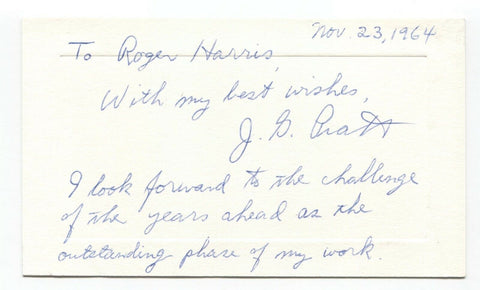 Nov. 23, 1964
To Roger Harris,
With my best wishes,
J. G. Pratt
I look forward to the challenge
of the years ahead as the
outstanding phase of my work.